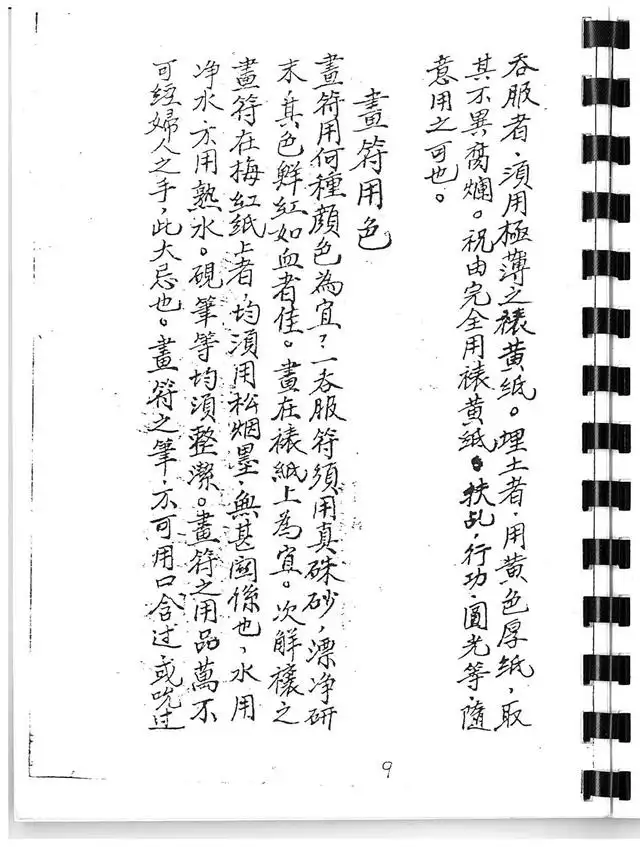 吞服者，須用極薄之裱黃紙。埋土者，用黃色厚紙，取
其不異腐爛。祝由完全用裱黃紙。扶乩，行功，圓光等，隨
意用之可也。
畫符用色
畫符用何種顏色為宜？一吞服符須用真硃砂，漂净研
末，其色鮮紅如血者佳。畫在裱紙上為宜。次解禳之
畫符在梅紅紙上者，均須用松烟墨，無甚関係也，水用
净水，亦用熟水。硯筆等均須整潔。畫符之用品萬不
可經婦人之手，此大忌也。畫符之筆，亦可用口含过，或吮过
9